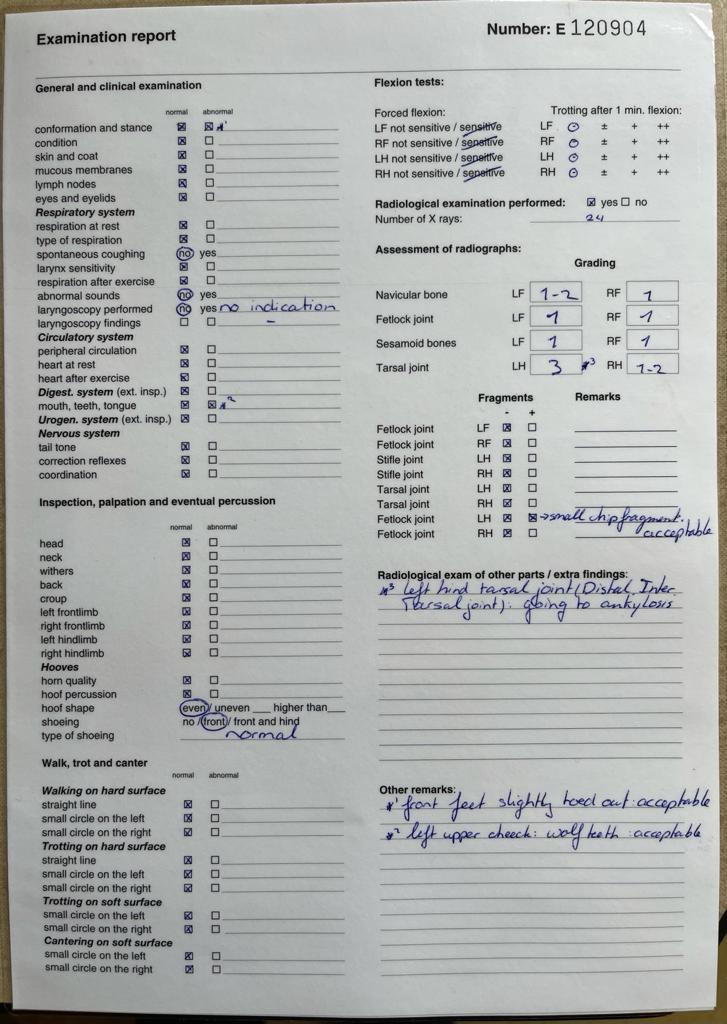 Examination report
Number: E 120904
General and clinical examination
normal abnormal
conformation and stance *1
condition
skin and coat
mucous membranes
lymph nodes
eyes and eyelids
Respiratory system
respiration at rest
type of respiration
spontaneous coughing no yes
larynx sensitivity
respiration after exercise
abnormal sounds no yes
laryngoscopy performed no yes no indication
laryngoscopy findings -
Circulatory system
peripheral circulation
heart at rest
heart after exercise
Digest. system (ext. insp.)
mouth, teeth, tongue *2
Urogen. system (ext. insp.)
Nervous system
tail tone
correction reflexes
coordination
Inspection, palpation and eventual percussion
normal abnormal
head
neck
withers
back
croup
left frontlimb
right frontlimb
left hindlimb
right hindlimb
Hooves
horn quality
hoof percussion
hoof shape even / uneven ___ higher than ___
shoeing no / front / front and hind
type of shoeing normal
Walk, trot and canter
normal abnormal
Walking on hard surface
straight line
small circle on the left
small circle on the right
Trotting on hard surface
straight line
small circle on the left
small circle on the right
Trotting on soft surface
small circle on the left
small circle on the right
Cantering on soft surface
small circle on the left
small circle on the right
Flexion tests:
Forced flexion: Trotting after 1 min. flexion:
LF not sensitive / sensitive LF - ± + ++
RF not sensitive / sensitive RF - ± + ++
LH not sensitive / sensitive LH - ± + ++
RH not sensitive / sensitive RH - ± + ++
Radiological examination performed: yes no
Number of X rays: 24
Assessment of radiographs:
Grading
Navicular bone LF 1-2 RF 1
Fetlock joint LF 1 RF 1
Sesamoid bones LF 1 RF 1
Tarsal joint LH 3 *3 RH 1-2
Fragments Remarks
- +
Fetlock joint LF
Fetlock joint RF
Stifle joint LH
Stifle joint RH
Tarsal joint LH
Tarsal joint RH
Fetlock joint LH → small chip fragment.
Fetlock joint RH acceptable
Radiological exam of other parts / extra findings:
*3 left hind tarsal joint (Distal Inter
Tarsal joint): going to ankylosis
Other remarks:
*1 front feet slightly toed out: acceptable
*2 left upper cheeck: wolf teeth: acceptable